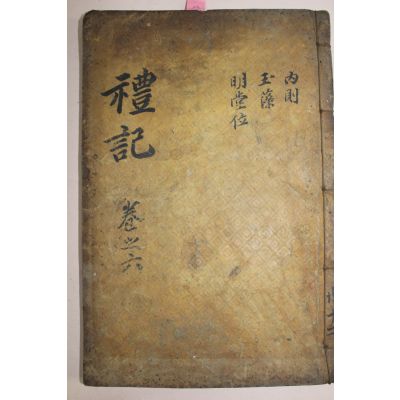 內則
玉藻
明堂位
禮記
卷之六